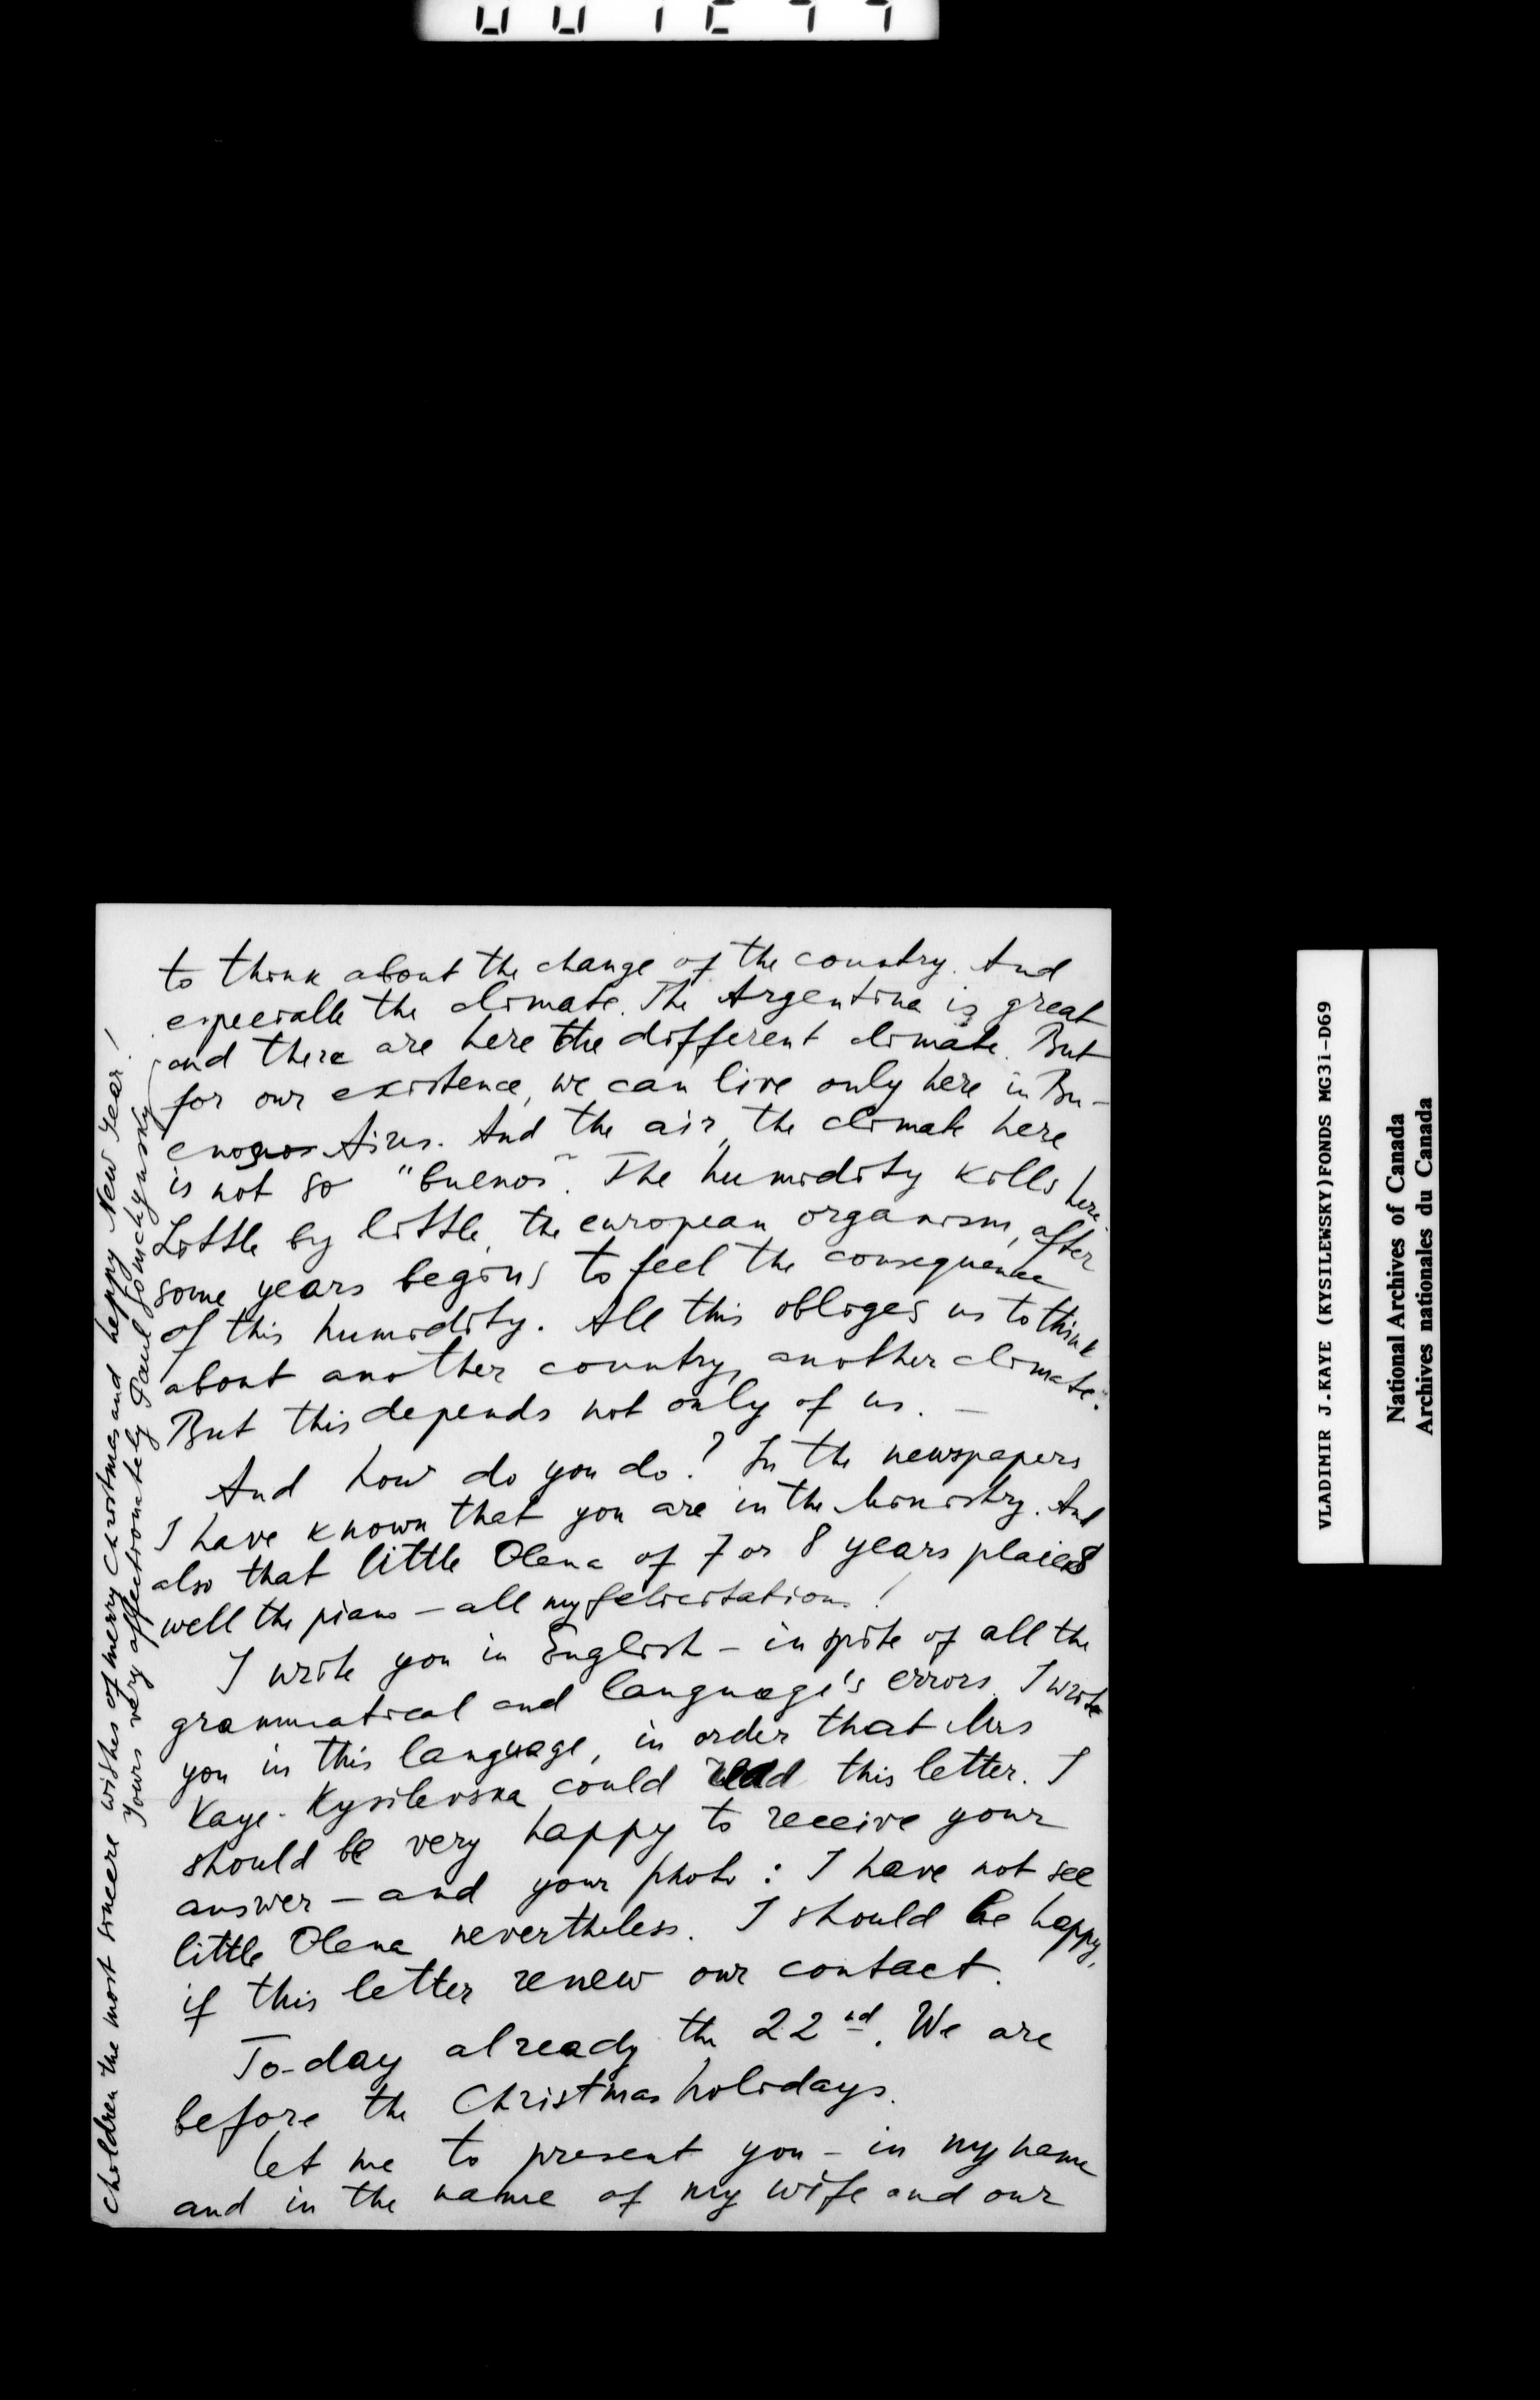 to think about the change of the country. And
especialle the climate. The Argentina is great
and there are here the different climate. But
for our existence, we can live only here in Bu-
enos Aires. And the air, the climate here
is not so "buenos". The humidity kills here.
Little by little, the european organism, after
some years begins to feel the consequence
of this humidity. All this obliges us to think
about another country, another climate.
But this depends not only of us. —
And how do you do? In the newspapers
I have known that you are in the Ministry. And
also that little Olena of 7 or 8 years plaies
well the piano — all my felicitations!
I write you in English — in spite of all the
grammatical and language's errors. I write
you in this language, in order that Mrs
Kaye-Kysilevska could read this letter. I
should be very happy to receive your
answer — and your photo: I have not see
little Olena nevertheless. I should be happy,
if this letter renew our contact.
To-day already the 22nd. We are
before the Christmas holidays.
Let me to present you — in my name
and in the name of my wife and our
children the most sincere wishes of merry Christmas and heppy New Year!
Yours very affectionately Paul
VLADIMIR J.KAYE (KYSILEWSKY)FONDS MG31-D69
National Archives of Canada
Archives nationales du Canada